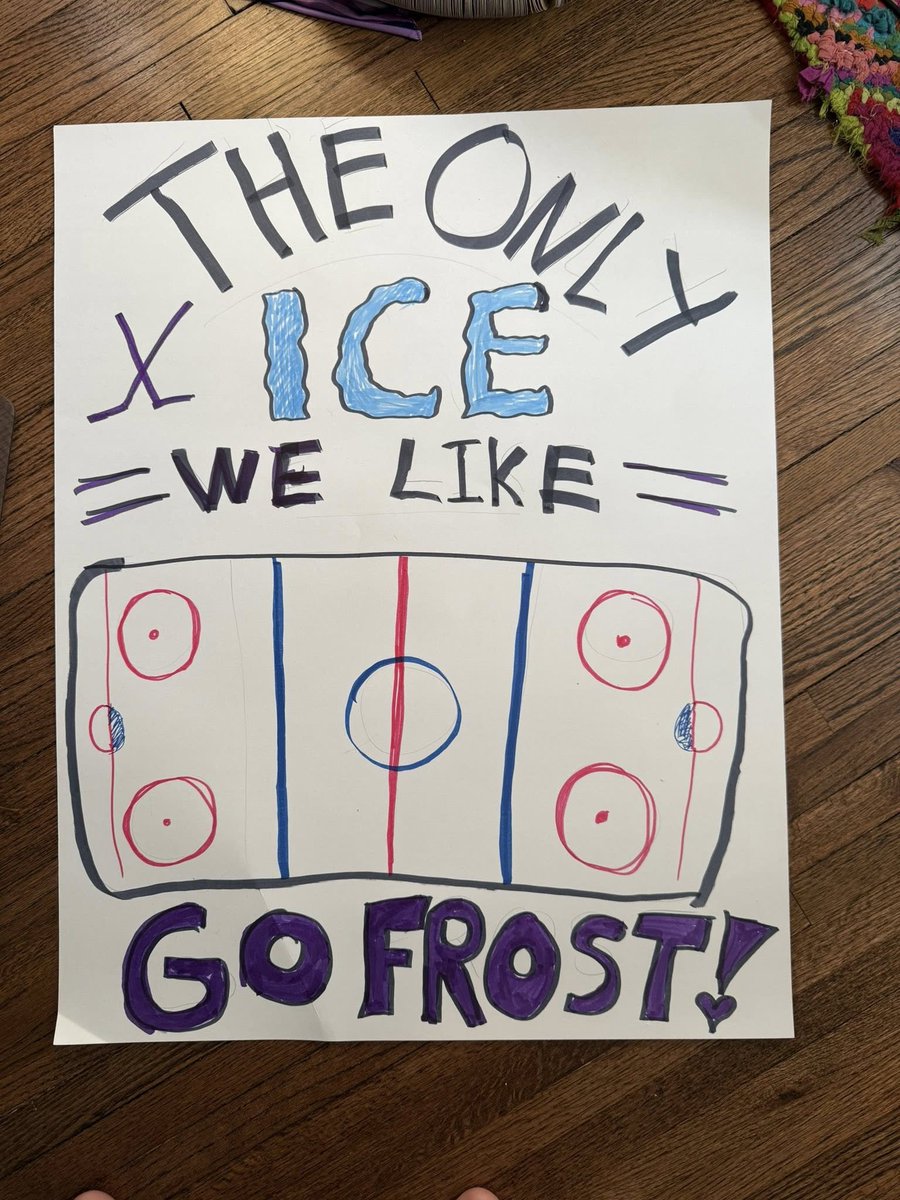 THE ONLY
ICE
WE LIKE
GO FROST!